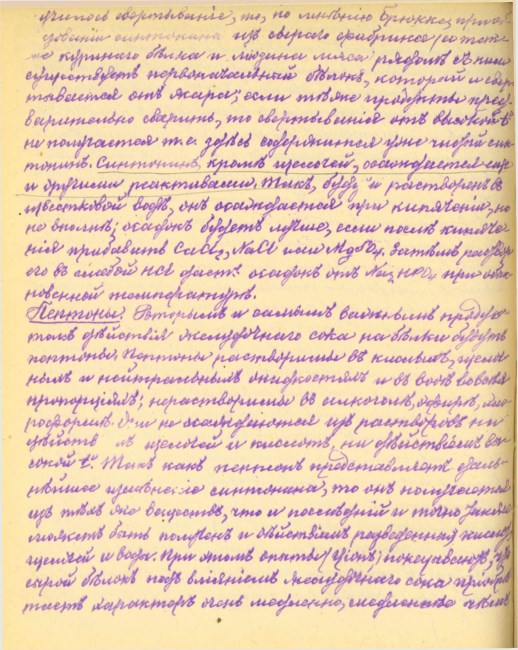 училось свертываніе, то, по мнѣнію Брюкке, при об
разованіи синтонина изъ сырого фибрина (а также
и куринаго бѣлка и людина мяса) рядомъ съ ним
существуетъ первоначальный бѣлокъ, который и свер
тывается отъ жара; если такіе продукты пред
варительно сварить, то свертыванія отъ высокой t°
не получается т.е. здѣсь содержится уже чистый син
тонинъ. Синтонинъ, кромѣ щелочей, осаждается еще
и другими реактивами. Такъ, будучи растворенъ въ
известковой водѣ, онъ осаждается при кипяченіи, но
не вполнѣ; осадокъ будетъ лучше, если послѣ кипяче
нія прибавить CaCl₂, NaCl или MgSO₄. Затѣмъ раствор
его въ слабой HCl даетъ осадокъ отъ Na₂HPO₄ при обык
новенной температурѣ.
Пептоны. Вторымъ и самымъ важнымъ продук
томъ дѣйствія желудочнаго сока на бѣлки будутъ
пептоны. Пептоны растворимы въ кислыхъ, щелоч
ныхъ и нейтральныхъ жидкостяхъ и въ водѣ во всѣхъ
пропорціяхъ; нерастворимы въ алкоголѣ, эфирѣ, хло
роформѣ. Они не осаждаются изъ растворовъ ни
дѣйств щелочей и кислотъ, ни дѣйствіемъ вы
сокой t°. Такъ какъ пептонъ представляетъ даль
нѣйшее измѣненіе синтонина, то онъ получается
изъ тѣхъ же веществъ, что и послѣдній и точно также
можетъ быть полученъ и дѣйствіемъ разведенныхъ кислот
щелочей и воды. При этомъ опыты показываютъ, что
сырой бѣлокъ подъ вліяніемъ желудочнаго сока пріобрѣ
таетъ характеръ очень медленно, медленнѣе чѣмъ